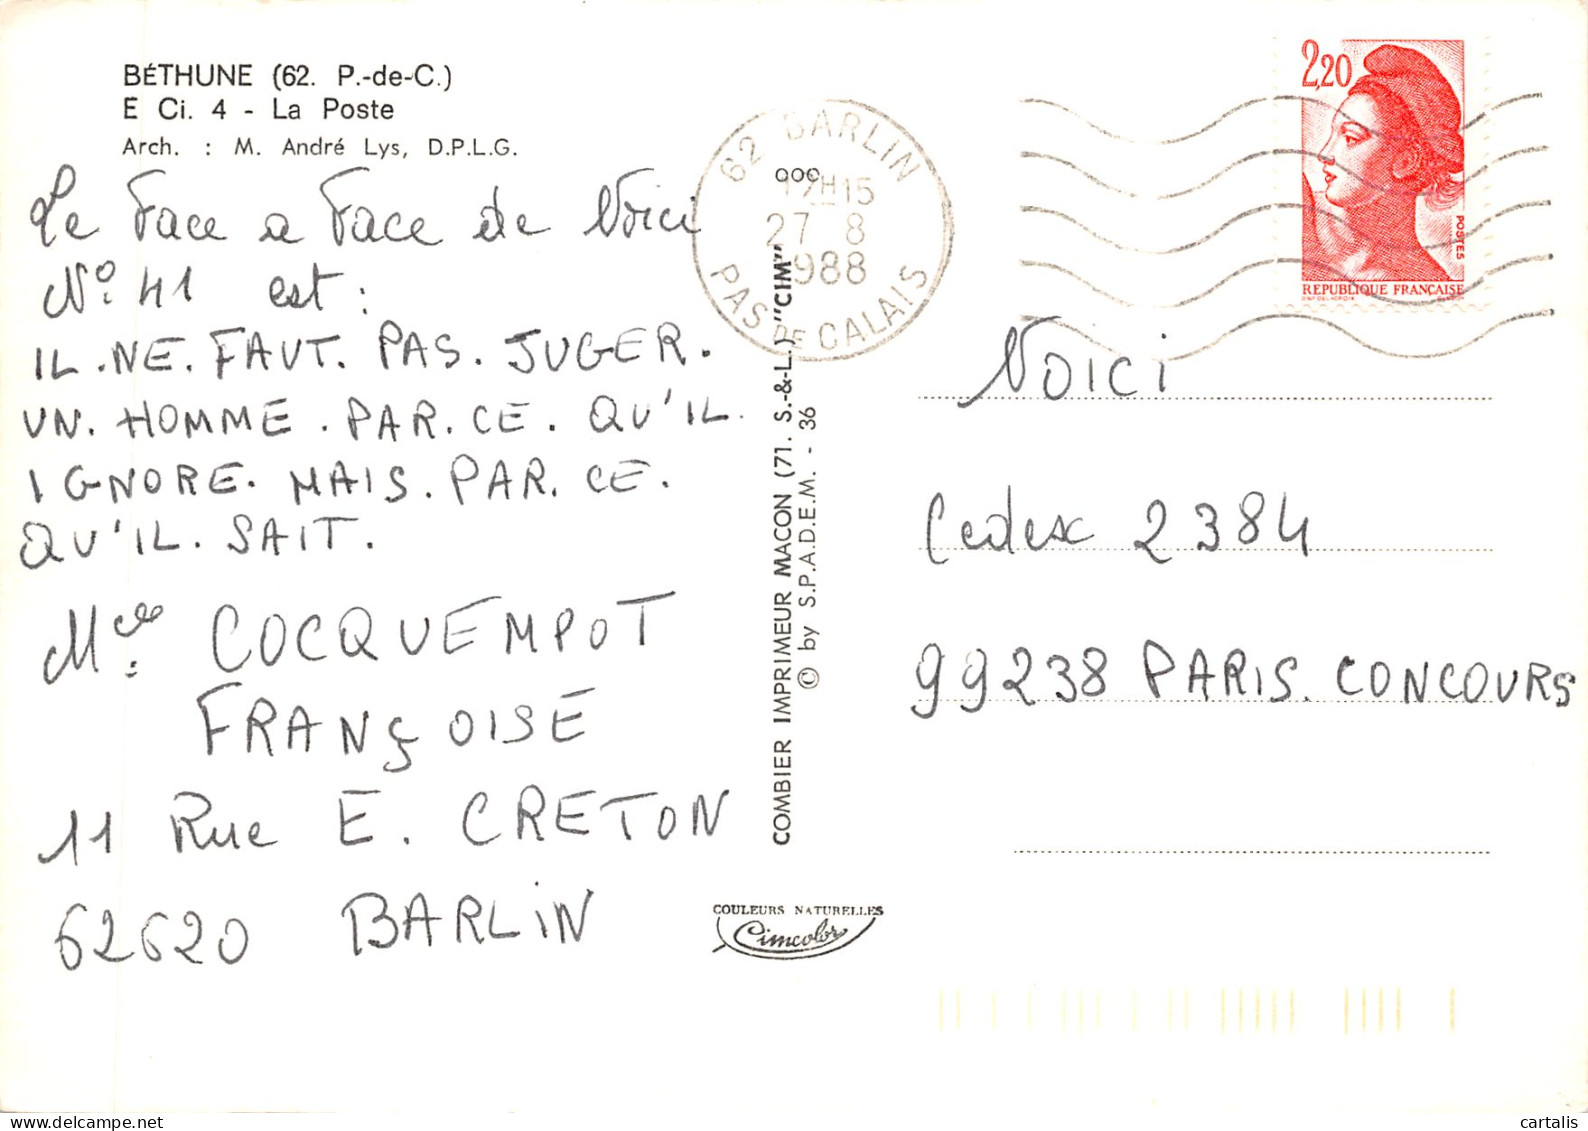 BÉTHUNE (62. P.-de-C.)
E Ci. 4 - La Poste
Arch. : M. André Lys, D.P.L.G.
Le Face a Face de Voici
N° 41 est :
IL. NE. FAUT. PAS. JUGER.
UN. HOMME. PAR. CE. QU'IL.
IGNORE. MAIS. PAR. CE.
QU'IL. SAIT.
Melle COCQUEMPOT
FRANÇOISE
11 Rue E. CRETON
62620 BARLIN
COMBIER IMPRIMEUR MACON (71. S.-&-L.) "CIM"
© by S.P.A.D.E.M. - 36
COULEURS NATURELLES
Cimcolor
62 BARLIN
H15
27 8
1988
PAS DE CALAIS
2,20
POSTES
REPUBLIQUE FRANÇAISE
VOICI
Cedex 2384
99238 PARIS. CONCOURS
cartalis